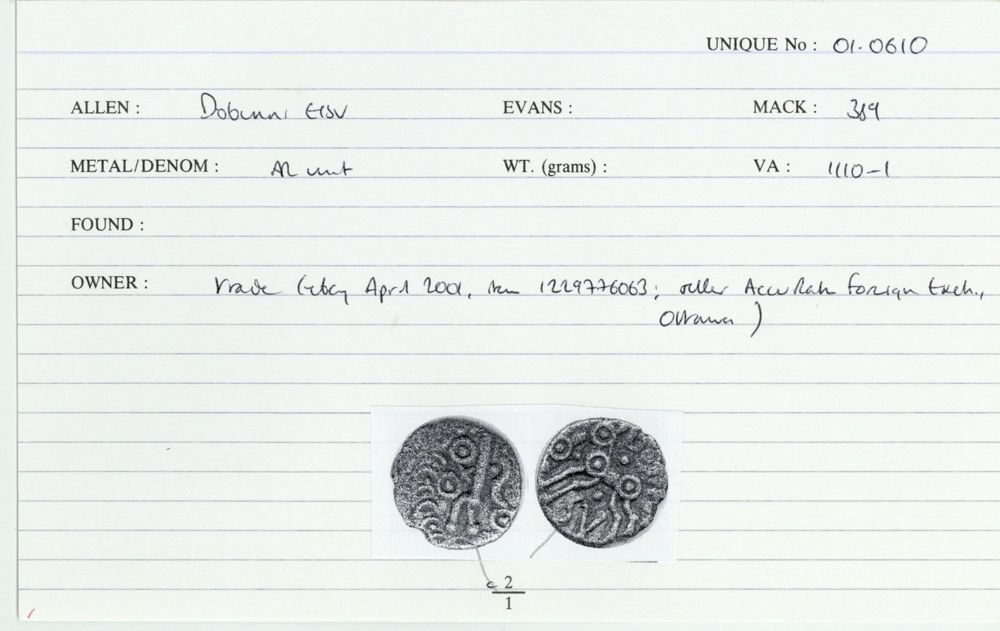 UNIQUE No : 01.0610
ALLEN : Dobunni EISV EVANS : MACK : 389
METAL/DENOM : AR unit WT. (grams) : VA : 1110-1
FOUND :
OWNER : trade (ebay April 2001, item 1229776063; seller Accu Rate Foreign Exch.,
Ottawa)
c 2
1